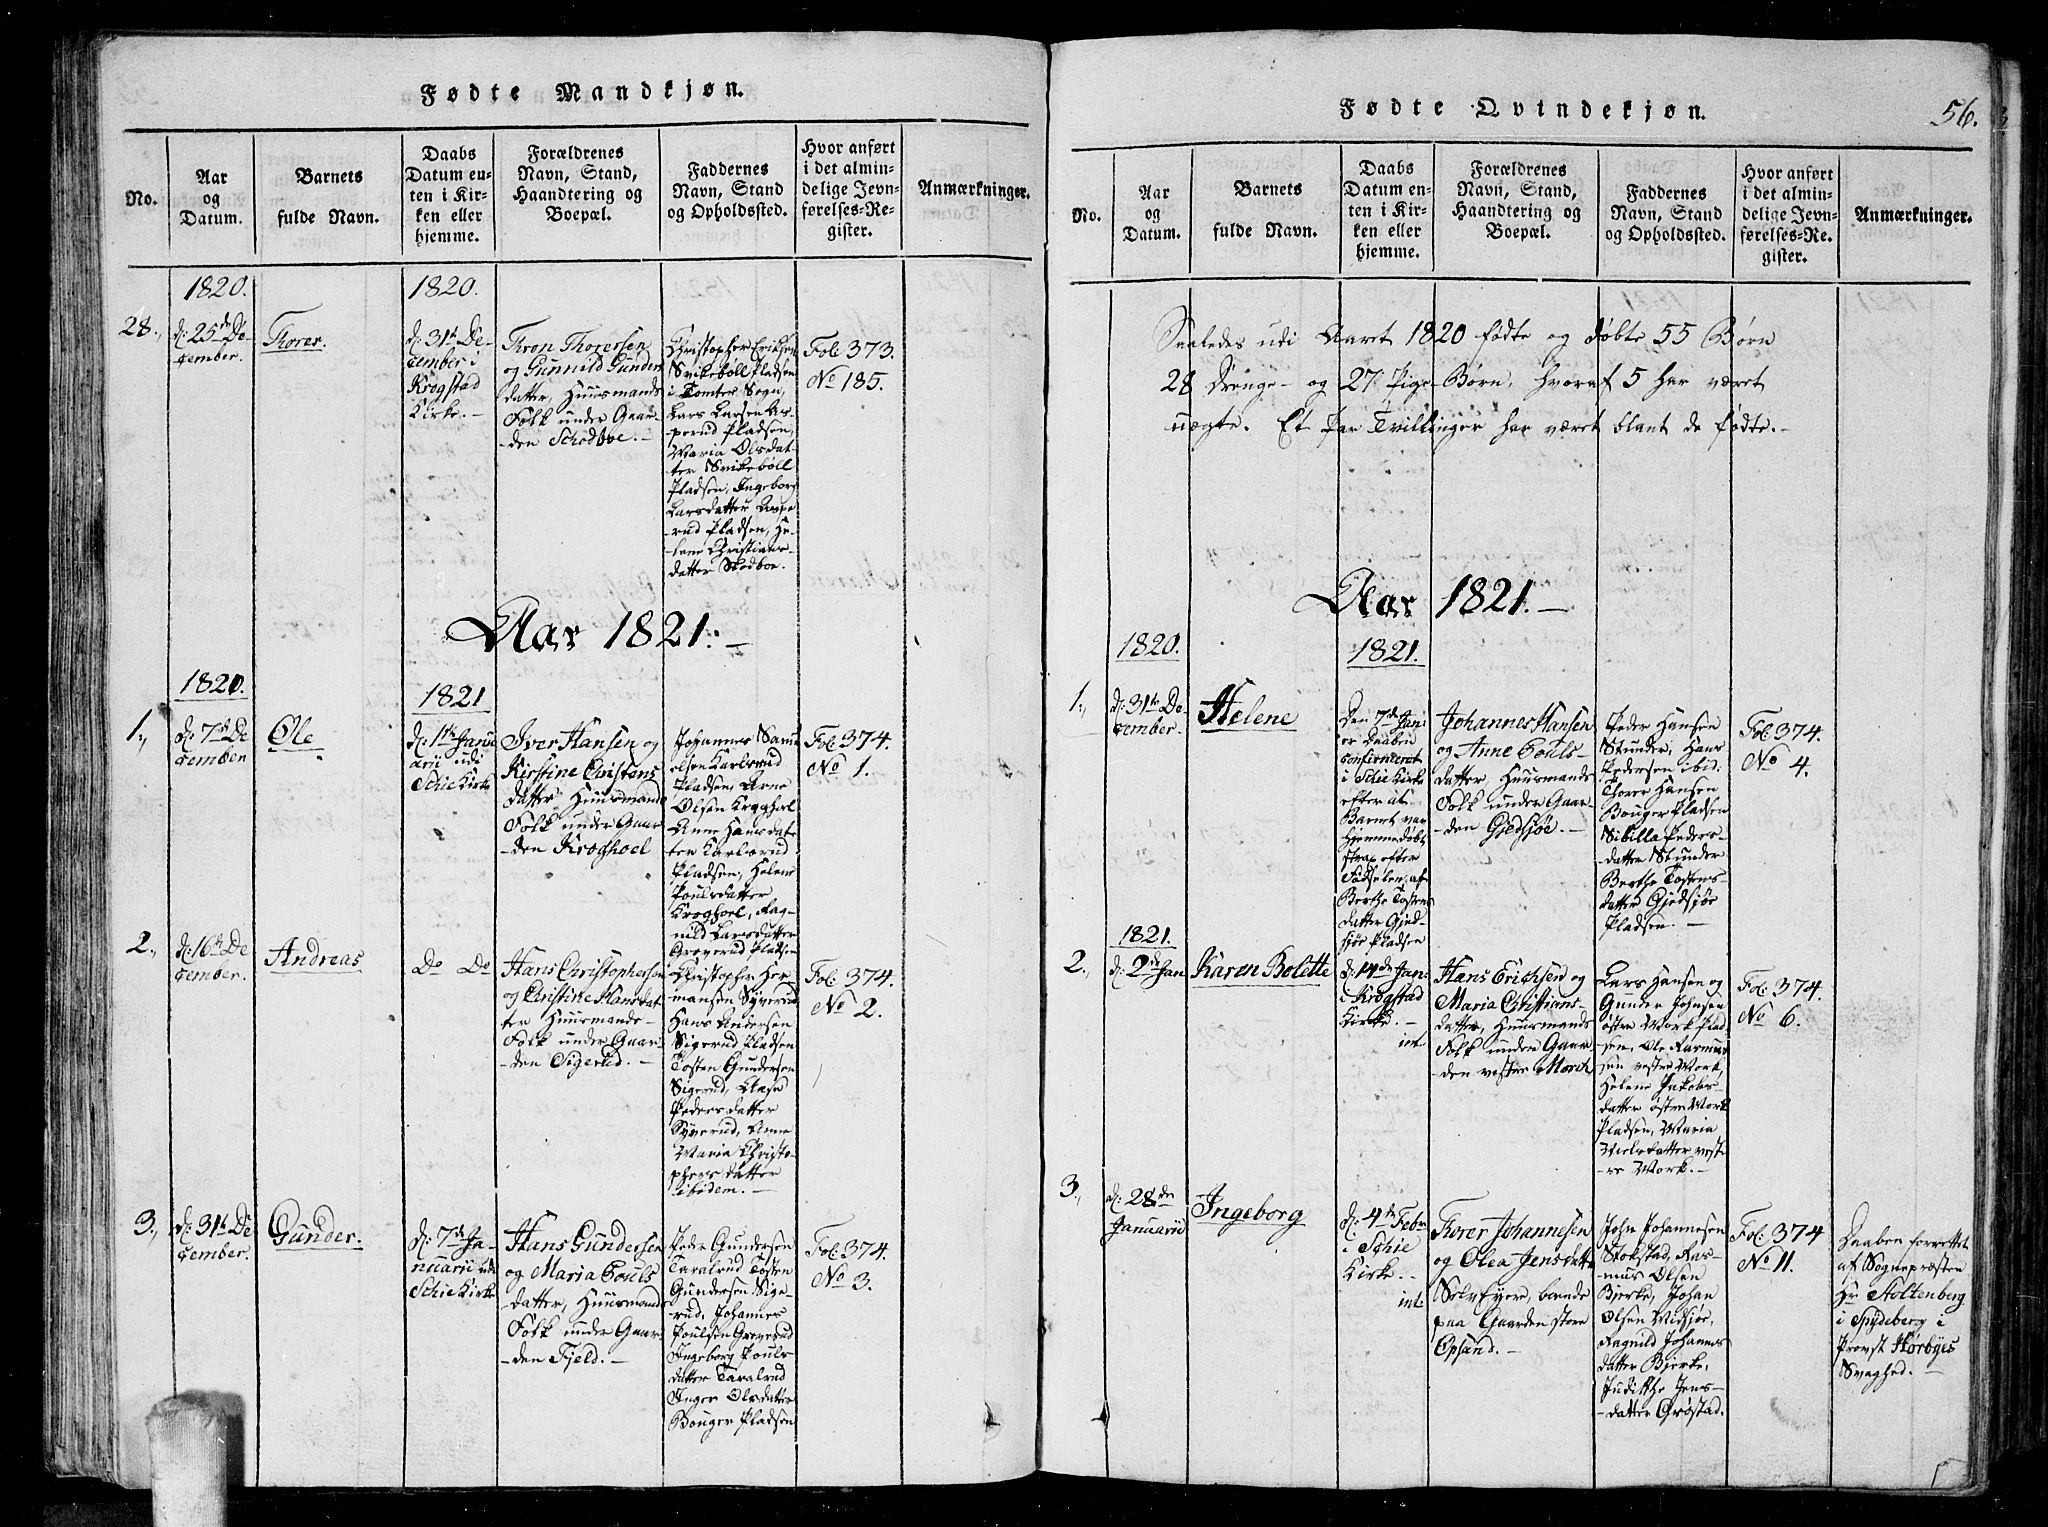 Fødte Mandkjøn.
No.
Aar
og
Datum.
Barnets
fulde Navn.
Daabs
Datum en-
ten i Kir-
ken eller
hjemme.
Forældrenes
Navn, Stand,
Haandtering og
Boepæl.
Faddernes
Navn, Stand
og Opholdssted.
Hvor anført
i det almin-
delige Jevn-
førelses-Re-
gister.
Anmærkninger.
1820.
1820.
28.,
d: 25de De-
cember.
Thorer.
d: 31te De-
cember i
Krogstad
Kirke.-
Thron Thorersen
og Gunnild Gunders
datter, Huusmands
Folk under Gaar-
den Schodboe.-
Christopher Eriksen
Svikeboll Pladsen
i Tomter Sogn,
Lars Larsen As-
perud Pladsen,
Maria Olsdat-
ter Svikeböll
Pladsen, Ingeborg
Larsdatter Aspe
rud Pladsen, He-
lene Christians-
datter Skodboe.
Fol: 373.
No 185.
Aar 1821.-
1820.
1821
1.,
d: 7de De
cember
Ole
d: 1te Janu
arii udi
Schie Kirke
Iver Hansen og
Kirstine Christens
datter Huusmands
Folk under Gaar
-den Kroghoel
Johannes Samu
elsen Karlsrud
Pladsen, Arne
Olsen Kroghoel
Anne Hansdat
ter Karlsrud
Pladsen, Helene
Poulsdatter
Kroghoel, Rag-
nild Larsdatter
Greverud Pladsen
Fol: 374.
No 1.
2.,
d: 16de De
cember.
Andreas
Do Do
Hans Christophersen
og Christine Hansdat
ter Huusmands-
Folk under Gaar
-den Sigerud.-
Christopher Her
mansen Syverud
Hans Andersen
Sigerud Pladsen
Tosten Gundersen
Sigerud, Aase
Pedersdatter
Syverud, Anne
Maria Christo-
phersdatter
ibidem.-
Fol: 374.
No 2.
3.,
d: 31te De
cember.
Gunder.
d: 7de Ja-
nuarii udi
Schie Kirke
Hans Gundersen
og Maria Pouls
-datter, Huusmands
Folk under Gaar-
-den Fjeld.-
Peder Gundersen
Taralrud Tosten
Gundersen Sige-
rud, Johannes
Poulsen Greverud
Ingeborg Pouls
datter Taralrud
Inger Olsdatter
Bonger Pladsen
Fol: 374.
No 3.
Fødte Qvindekjøn.
56.
No.
Aar
og
Datum.
Barnets
fulde Navn.
Daabs
Datum en-
ten i Kir-
ken eller
hjemme.
Forældrenes
Navn, Stand,
Haandtering og
Boepæl.
Faddernes
Navn, Stand
og Opholdssted.
Hvor anført
i det almin-
delige Jevn-
førelses-Re-
gister.
Anmærkninger.
Saaledes udi Aaret 1820 fødte og døbte 55 Børn
28 Drenge- og 27 Pige-Børn, hvoraf 5 har været
uægte. Et Par Tvillinger har været blant de fødte.-
Aar 1821.-
1820.
1821.
1.,
d: 31te De
cember.
Helene
Den 7de Jan:
er Daaben
confirmeret
i Schie Kirke
efter at
Barnet var
hjemmedøbt
strax efter
Fødselen, af
Berthe Tostens
datter Gjed-
sjøe Pladsen
Johannes Hansen
og Anne Pouls-
datter, Huusmands
Folk under Gaar-
-den Giedsjøe.-
Peder Hansen
Stunder, Hans
Pedersen ibid:
Thorer Hansen
Bonger Pladsen
Sibilla Peders-
-datter Stunder
Berthe Tostens-
datter Gjedsjøe
Pladsen.-
Fol: 374.
No 4.
1821.
2.,
d: 2de Jan
Karen Bolette
d: 14de Jan:
i Krogstad
Kirke.-
int
Hans Erichsen og
Maria Christians-
datter, Huusmands
Folk under Gaar
den vester Morck
Lars Hansen og
Gunder Johnsen
østre Mork Plad
sen, Ole Rasmus
sen vestre Mork,
Helene Jakobs-
datter østre Mork
Pladsen, Maria
Nielsdatter vest-
re Mork.-
Fol: 374.
No 6.
3.,
d: 28de
Januarii
Ingeborg
d: 4de Febr
i Schie
Kirke.-
int
Thorer Johannesen
og Olea Jensdatter
Selv Eyere, boende
paa Gaarden store
Opsand.-
John Johannesen
Stokstad, Ras-
mus Olsen
Bjerke, Johan
Olsen Midsjøe,
Ragnild Johannes
datter Bjerke,
Judithe Jens-
-datter Grøstad.
Fol: 374
No 11.
Daaben forrettet
af Sognepræsten
Hr Stoltenberg
i Spydeberg i
Provst Hørbyes
Svaghed.-